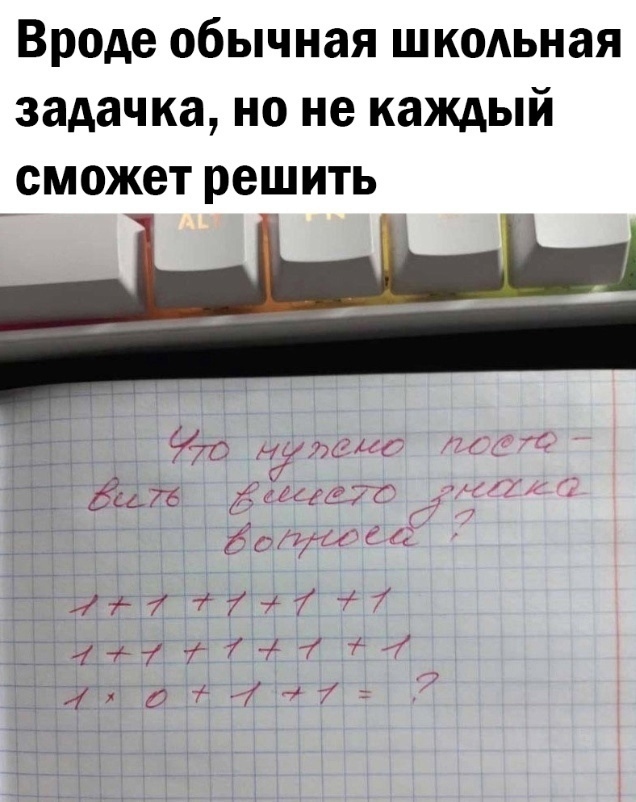 Вроде обычная школьная
задачка, но не каждый
сможет решить
Что нужно поста-
вить вместо знака
вопроса?
1+1+1+1+1
1+1+1+1+1
1×0+1+1=?